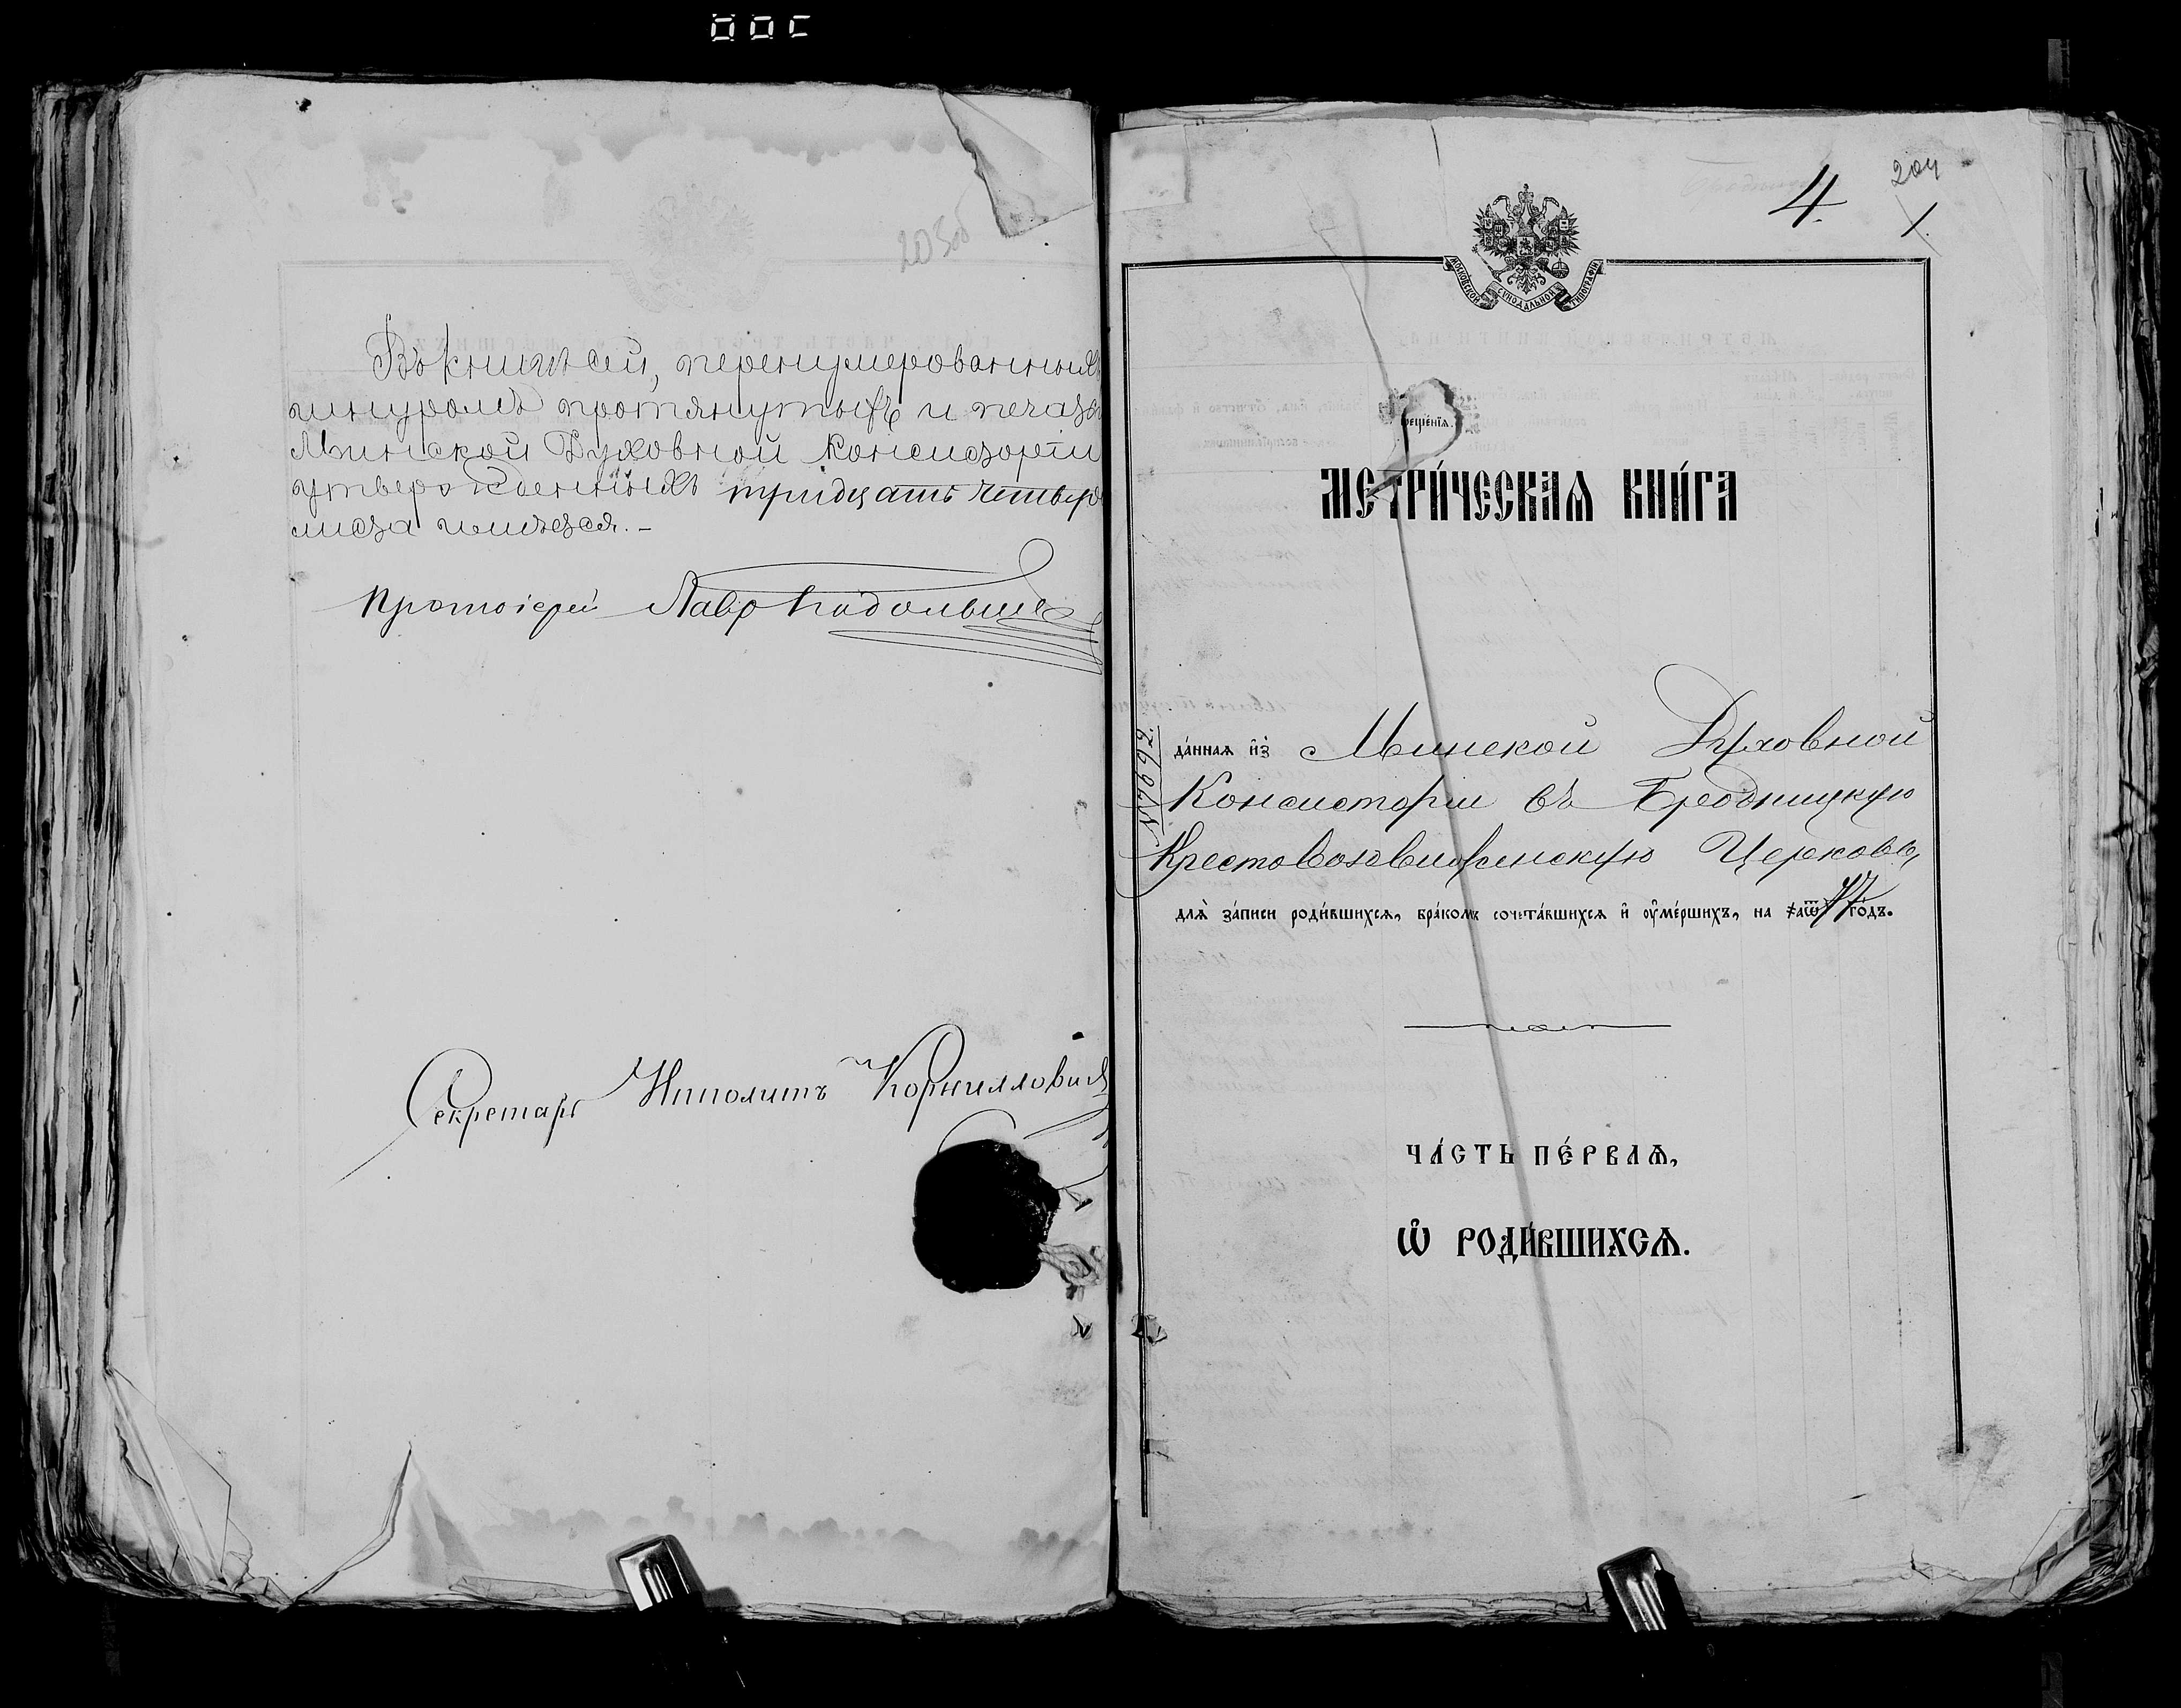 203об
Въ книгѣ сей, перенумерованныхъ
шнуромъ протянутыхъ и печатью
Минской Духовной Консисторіи
утвержденныхъ тридцать четыре
листа имѣется. –
Протоіерей Лавръ
Секретарь Ипполитъ Корнилловичъ
204
4.
1.
МОСКОВСКОЙ СѴНОДАЛЬНОЙ ТИПОГРАФІИ
МЕТРИ́ЧЕСКАѦ КНИ́ГА
да́ннаѧ и҆з̾ Минской Духовной
Консисторіи въ Бродницкую
Крестовоздвиженскую Церковь,
длѧ̀ за́писи роди́вшихсѧ, бра́комъ сочета́вшихсѧ и҆ ᲂу҆ме́ршихъ, на ҂аѿ го́дъ.
ЧА́СТЬ ПЕ́РВАѦ,
Ѡ҆ РОДИ́ВШИХСѦ.